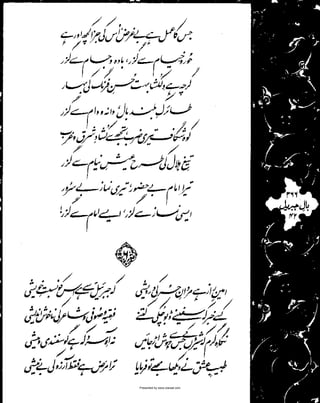 جس کا عمل ہے بے غرض، اس کی جزا کچھ اور ہے
حور و خیام سے گزر، بادہ و جام سے گزر
گرچہ ہے دلکشا بہت حسن فرنگ کی بہار
طائرک بلند بال، دانہ و دام سے گزر
کوہ شگاف تیری ضرب، تجھ سے کشاد شرق و غرب
تیغ ہلال کی طرح عیش نیام سے گزر
تیرا امام بے حضور، تیری نماز بے سرور
ایسی نماز سے گزر، ایسے امام سے گزر!
امین راز ہے مردان حر کی درویشی کہ جبرئیل سے ہے اس کو نسبت خویشی
کسے خبر کہ سفینے ڈبو چکی کتنے فقیہ و صوفی و شاعر کی ناخوش اندیشی
نگاہ گرم کہ شیروں کے جس سے ہوش اڑ جائیں نہ آہ سرد کہ ہے گوسفندی و میشی
طبیب عشق نے دیکھا مجھے تو فرمایا ترا مرض ہے فقط آرزو کی بے نیشی
بال جبریل
۴۲